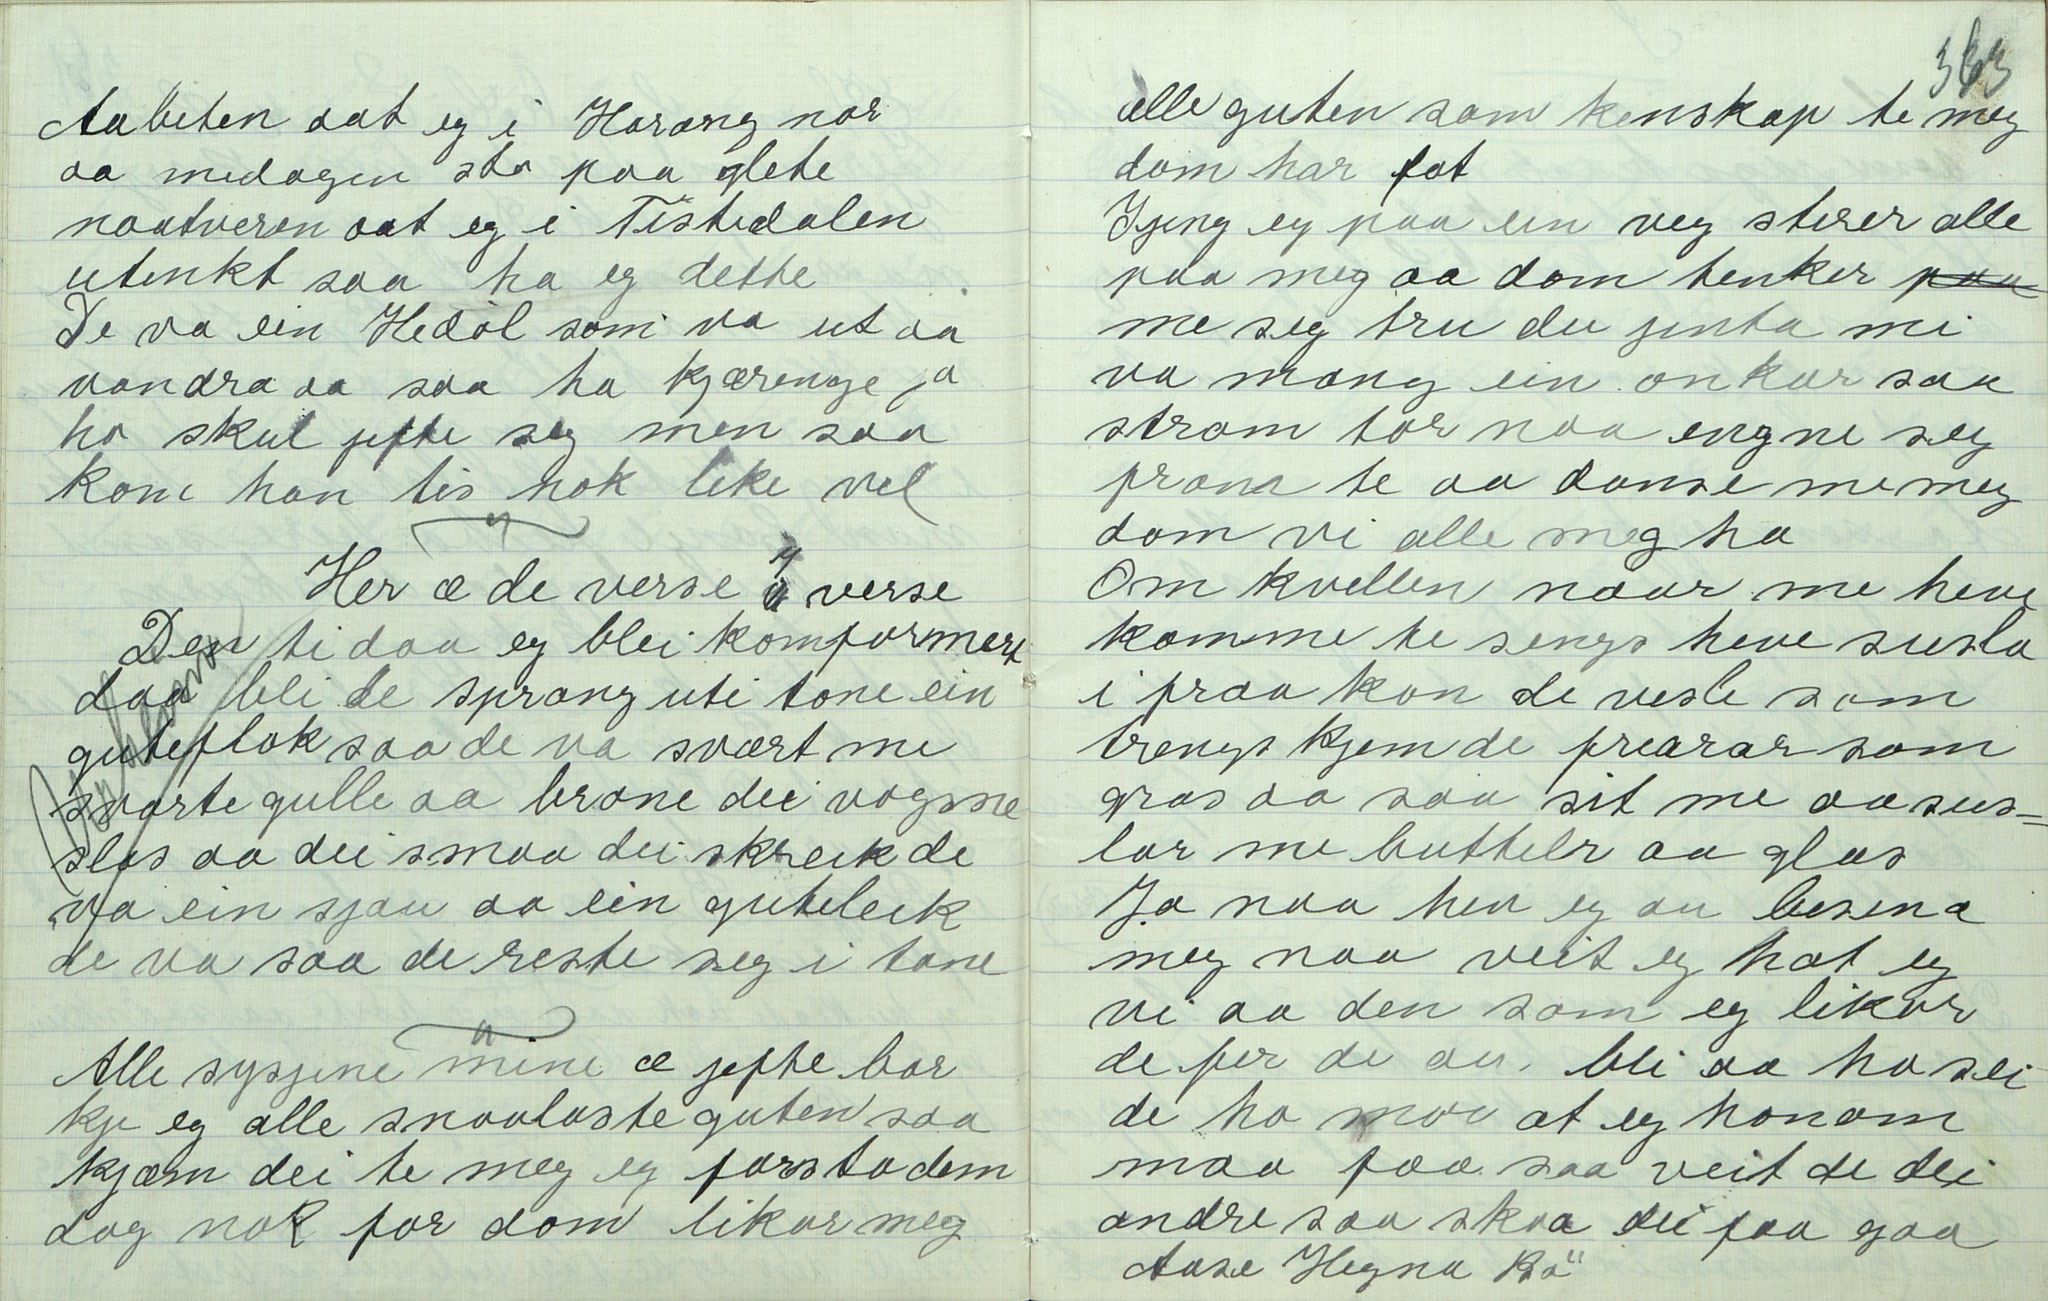 Aabeten aat eg i Horong nor
aa medagen sto paa glete
naatveren aat eg i Tistedalen
utenkt saa ha eg dette
De va ein Hedöl som va ut aa
vandra aa saa ha kjærenge ja
ho skul jefte seg men saa
kom han tis nok like vel
Her æ de verse å verse
Den ti daa eg blei komformert
daa blei de sprang uti tone ein
guteflok saa de va svært me
svarte gulle aa brone dei vogsne
slos aa dei smaa dei skreik de
va ein sjau aa ein guteleik
de va saa de reste seg i tone
Alle sysjene mine æ jefte bor
kje eg alle snaalaste guten saa
kjæm dei te meg eg forsto dem
dog nok for dom likar meg
363
alle guten som kenskap te meg
dom har fat
Jjeng eg paa ein veg stirer alle
paa meg aa dom tenker paa
me seg tru du jenta mi
va mang ein onkar saa
stram tor naa engne seg
fram te aa danse me meg
dom vi alle meg ha
Om kvellen naar me heve
komme te sengs heve susla
i fraa kan de vesle som
trengs kjem de frearar som
gras aa saa sit me aa sus=
lar me buttelr aa glas
Ja naa hev eg au besena
meg naa veit eg hat eg
vi aa den som eg likar
de fer de au bli aa ha sei
de ho mor at eg honom
maa faa saa veit de dei
andre saa skaa dei faa gaa
Aase Hegna Bö